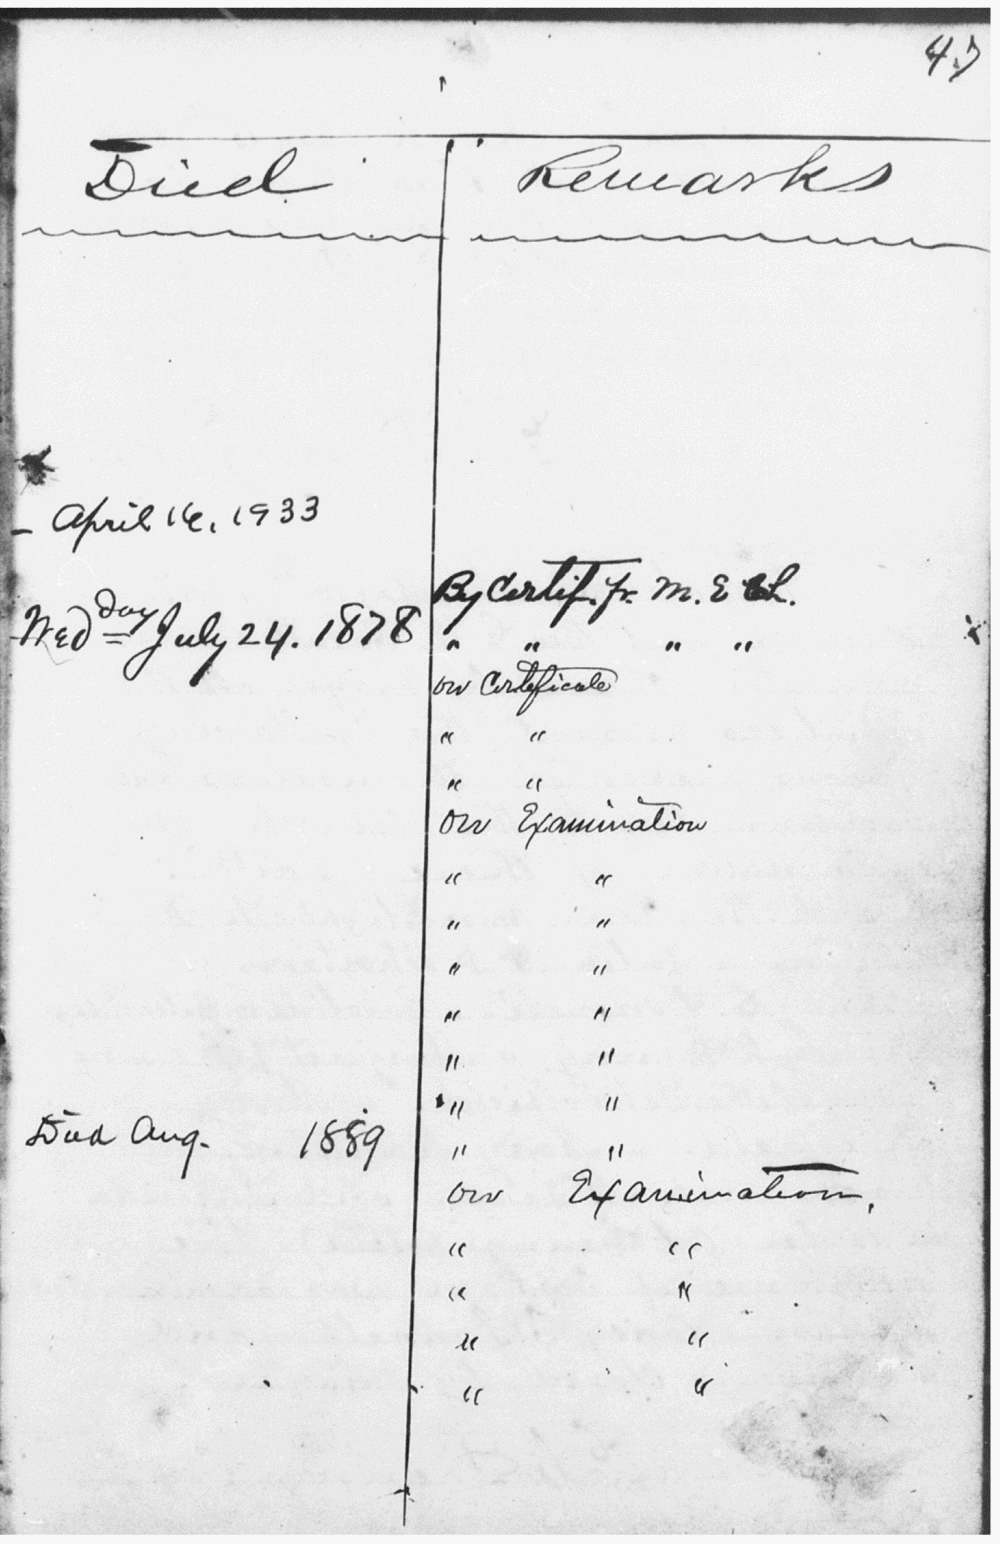 47
Died Remarks
- April 16, 1933
By Certif. fr. M. E Ch.
Wedday July 24. 1878 " " " "
on Certificate
" "
" "
on Examination
" "
" "
" "
" "
" "
" "
Died Aug. 1889 " "
on Examination,
" "
" "
" "
" "